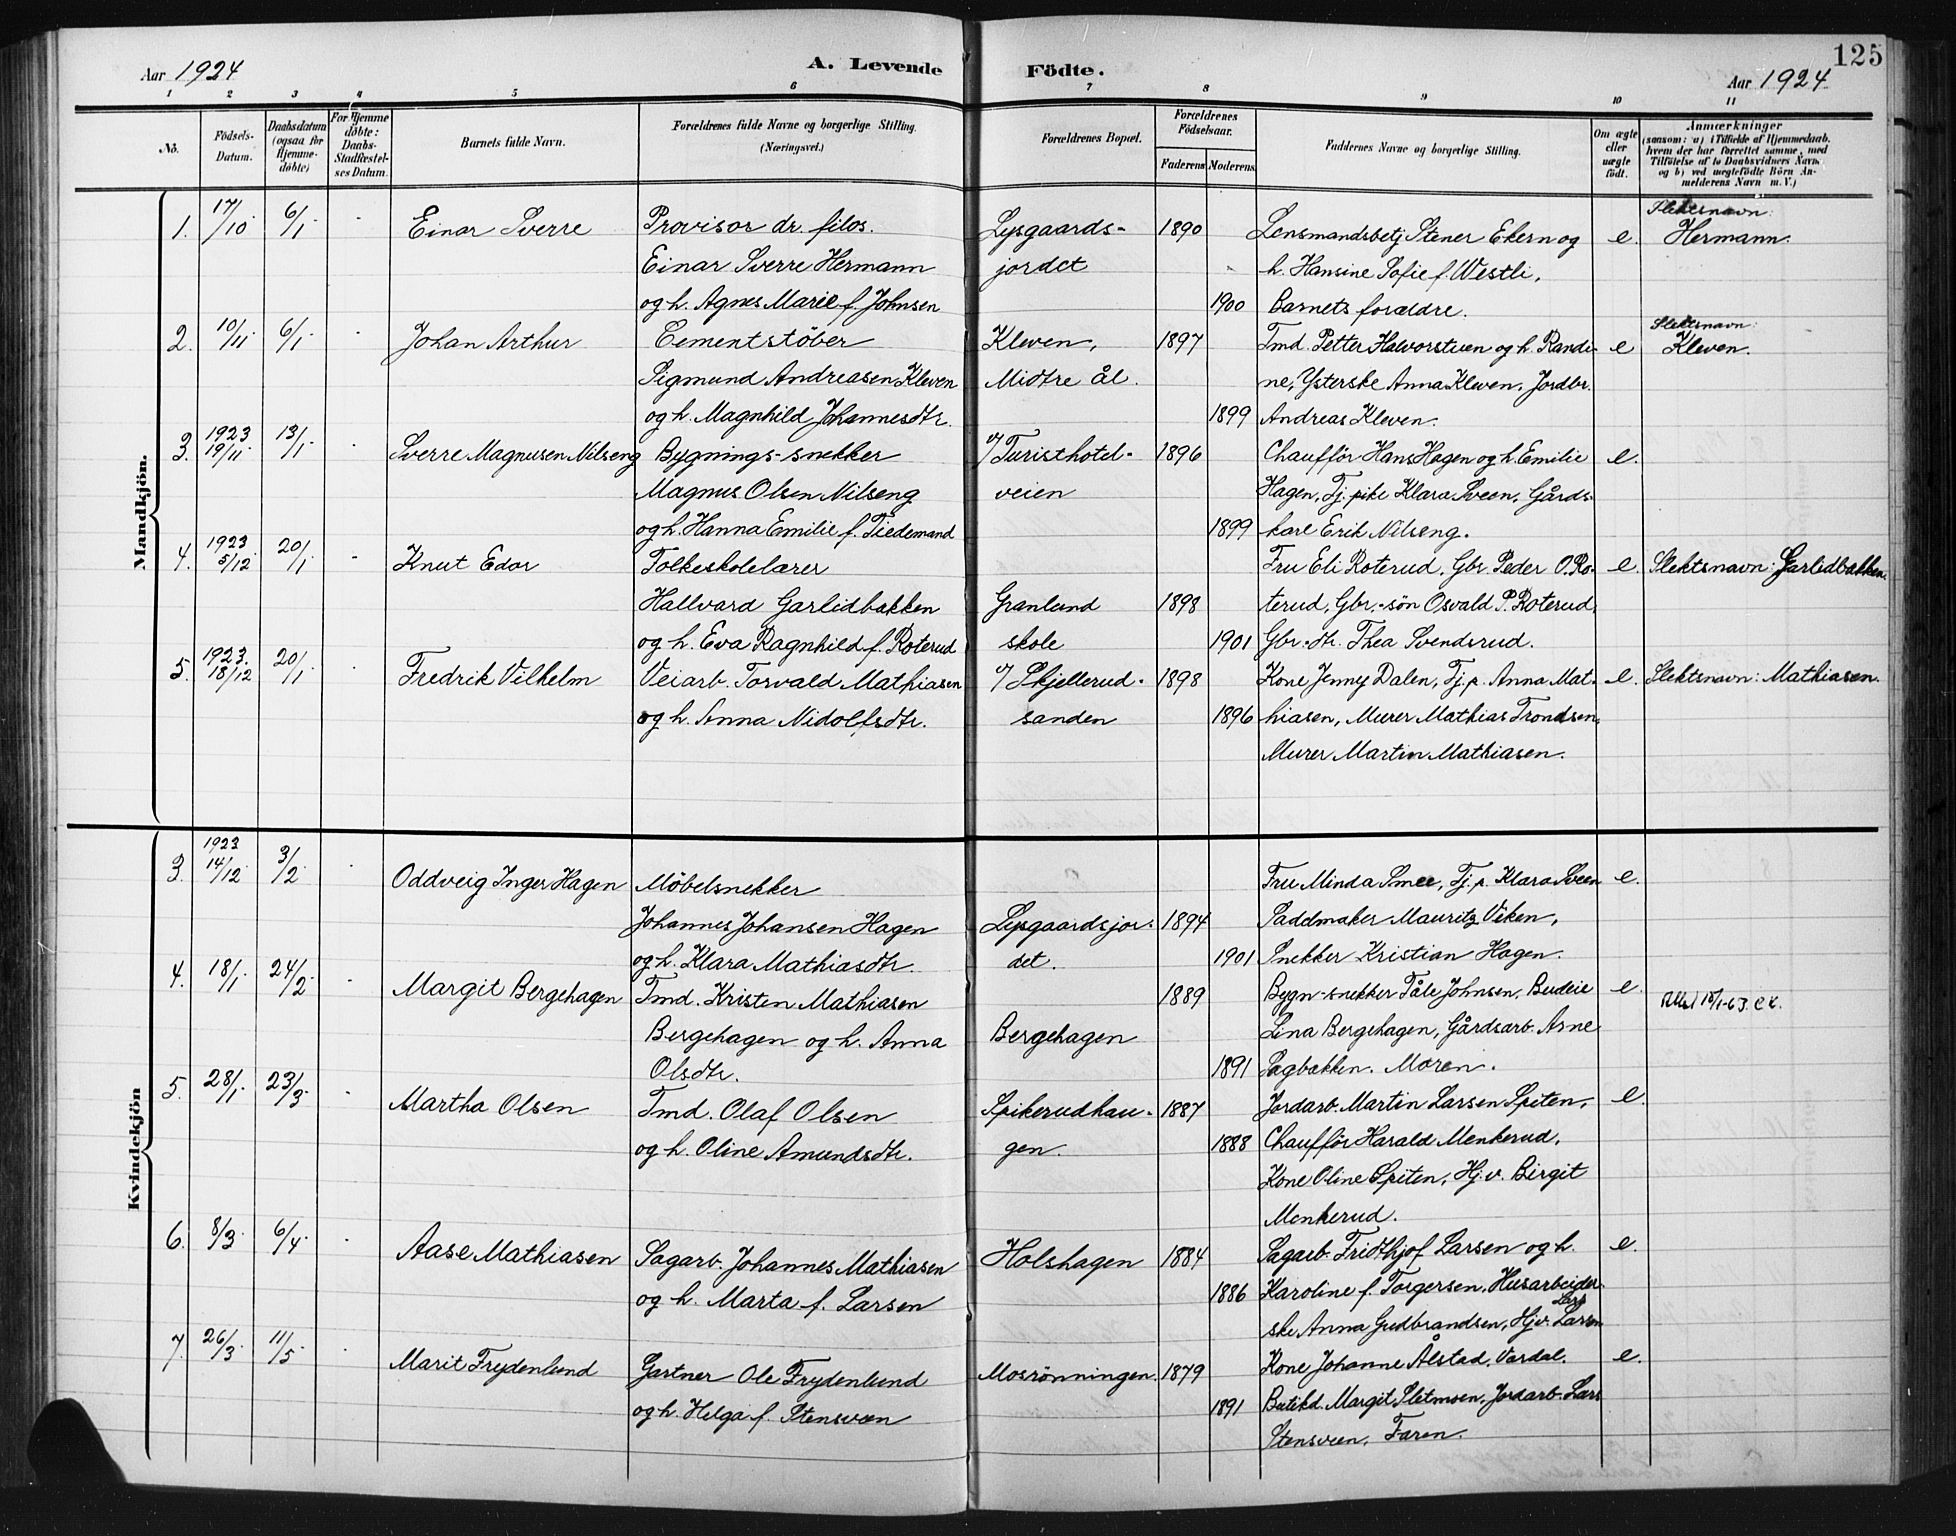 Aar 1924
A. Levende Födte.
Aar 1924
125
1 2 3 4 5 6 7 8 9 10 11
No.
Födsels-Datum.
Daabsdatum (ogsaa for Hjemmedøbte)
For Hjemmedøbte: Daabs-Stadfæstelses Datum.
Barnets fulde Navn.
Forældrenes fulde Navne og borgerlige Stilling. (Næringsvei.)
Forældrenes Bopæl.
Forældrenes Födselsaar.
Faderens Moderens
Faddernes Navne og borgerlige Stilling.
Om ægte eller uægte født.
Anmærkninger (saasom: a) i Tilfælde af Hjemmedaab, hvem der har forrettet samme, med Tilföielse af to Daabsvidners Navn, og b) ved uægtefödte Börn Anmelderens Navn m. V.)
Mandkjön.
1. 17/10 6/1 Einar Sverre Provisor dr. filos. Lysgaards- 1890 Lensmandsbetj Stener Ekern og e. Slektsnavn: Hermann.
Einar Sverre Hermann jordet h. Hansine Sofie f. Westli,
og h. Agnes Marie f. Johnsen 1900 Barnets forældre.
2. 10/11 6/1 Johan Arthur Cementstöber Kleven, 1897 Tmd. Petter Halvorstuen og h. Randi- e Slektsnavn: Kleven.
Sigmund Andreasen Kleven Midtre ål. ne, Ysterske Anna Kleven, Jordbr.
og h. Magnhild Johannesdtr. 1899 Andreas Kleven.
3. 1923 19/11 13/1 Sverre Magnusen Nilseng Bygnings-snekker v/ Turisthotel- 1896 Chaufför Hans Hagen og h. Emilie e.
Magnus Olsen Nilseng veien Hagen, Tj. pike Klara Sveen, Gårds-
og h. Hanna Emilie f. Tiedemand 1899 karl Erik Nilseng.
4. 1923 5/12 20/1 Knut Edor Folkeskolelærer Fru Eli Roterud, Gbr. Peder O. Ro- e. Slektsnavn: Garlidbakken.
Hallvard Garlidbakken Granlund 1898 terud, Gbr.-sön Osvald P. Roterud,
og h. Eva Ragnhild f. Roterud skole 1901 Gbr.-dtr. Thea Svendsrud.
5. 1923. 18/12 20/1 Fredrik Vilhelm Veiarb. Torvald Mathiasen v/ Skjellerud- 1898 Kone Jenny Dalen, Tj.p. Anna Mat- e. Slektsnavn: Mathiasen.
og h. Anna Nidolfsdtr. sanden 1896 hiasen, Murer Mathias Trondsen,
Murer Martin Mathiasen.
Kvindekjön
3. 1923 14/12 3/2 Oddveig Inger Hagen Möbelsnekker Fru Minda Smee, Tj.p. Klara Sveen e.
Johannes Johansen Hagen Lysgaardsjor- 1894 Sadelmaker Mauritz Viken,
og h. Klara Mathiasdtr. det. 1901 Snekker Kristian Hagen.
4. 18/1 24/2 Margit Bergehagen Tmd. Kristen Mathiasen 1889 Bygn-snekker Tåle Johnsen, Budeie e. 15/1-63.
Bergehagen og h. Anna Bergehagen Lina Bergehagen, Gårdsarb. Arne
Olsdtr. 1891 Sagbakken. Moren.
5. 28/1 23/3 Martha Olsen Tmd. Olaf Olsen Spikerudhau- 1887 Jordarb. Martin Larsen Spiten, e.
og h. Oline Amundsdtr. gen. 1888 Chaufför Harald Menkerud,
Kone Oline Spiten, Hj.v. Birgit
Menkerud.
6. 8/3 6/4 Aase Mathiasen Sagarb. Johannes Mathiasen Holshagen 1884 Sagarb. Fridthjof Larsen og h. e.
og h. Marta f. Larsen 1886 Karoline f. Torgersen, Husarbeider-
ske Anna Gudbrandsen, Hj.v. Lars Larsen
7. 26/3 11/5 Marit Frydenlund Gartner Ole Frydenlund Mosrönningen. 1879 Kone Johanne Ålstad, Vardal. e.
og h. Helga f. Stensveen 1891 Butikd. Margit Sletmoen, Jordarb. Lars
Stensveen, Faren.